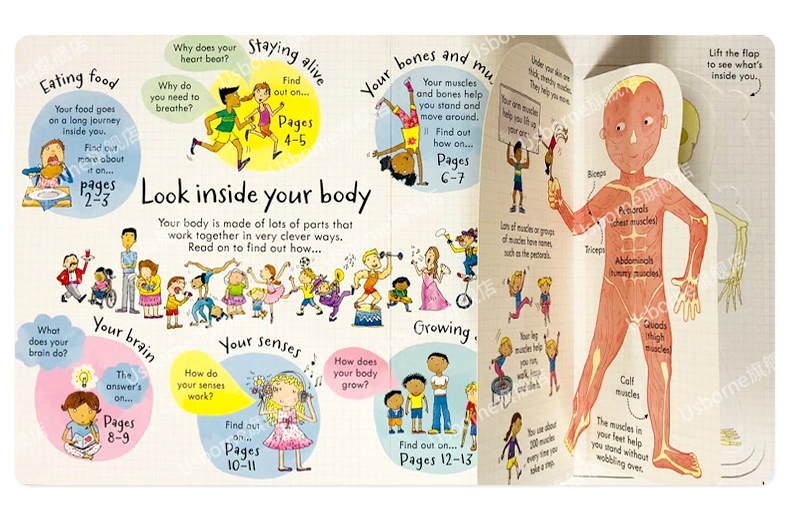 Eating food
Your food goes
on a long journey
inside you.
Find out
more about
it on...
pages
2-3
Why does your
heart beat?
Why do
you need to
breathe?
Staying alive
Find
out on...
Pages
4-5
Your bones and mu
Your muscles
and bones help
you stand and
move around.
Find out
how on...
Pages
6-7
Look inside your body
Your body is made of lots of parts that
work together in very clever ways.
Read on to find out how...
What
does your
brain do?
Your brain
The
answer's
on...
Pages
8-9
Your senses
How do
your senses
work?
Find out
on...
Pages
10-11
Growing
How does
your body
grow?
Find out on...
Pages 12-13
Under your skin are
thick, stretchy muscles.
They help you move.
Your arm muscles
help you lift up
your arm.
Lots of muscles or groups
of muscles have names,
such as the pectorals.
Your leg
muscles
help you
run,
walk,
and climb.
You use about
200 muscles
every time you
take a step.
Lift the flap
to see what's
inside you.
Biceps
Pectorals
(chest muscles)
Triceps
Abdominals
(tummy muscles)
Quads
(thigh
muscles)
Calf
muscles
The muscles in
your feet help
you stand without
wobbling over.
Usborne旗舰店